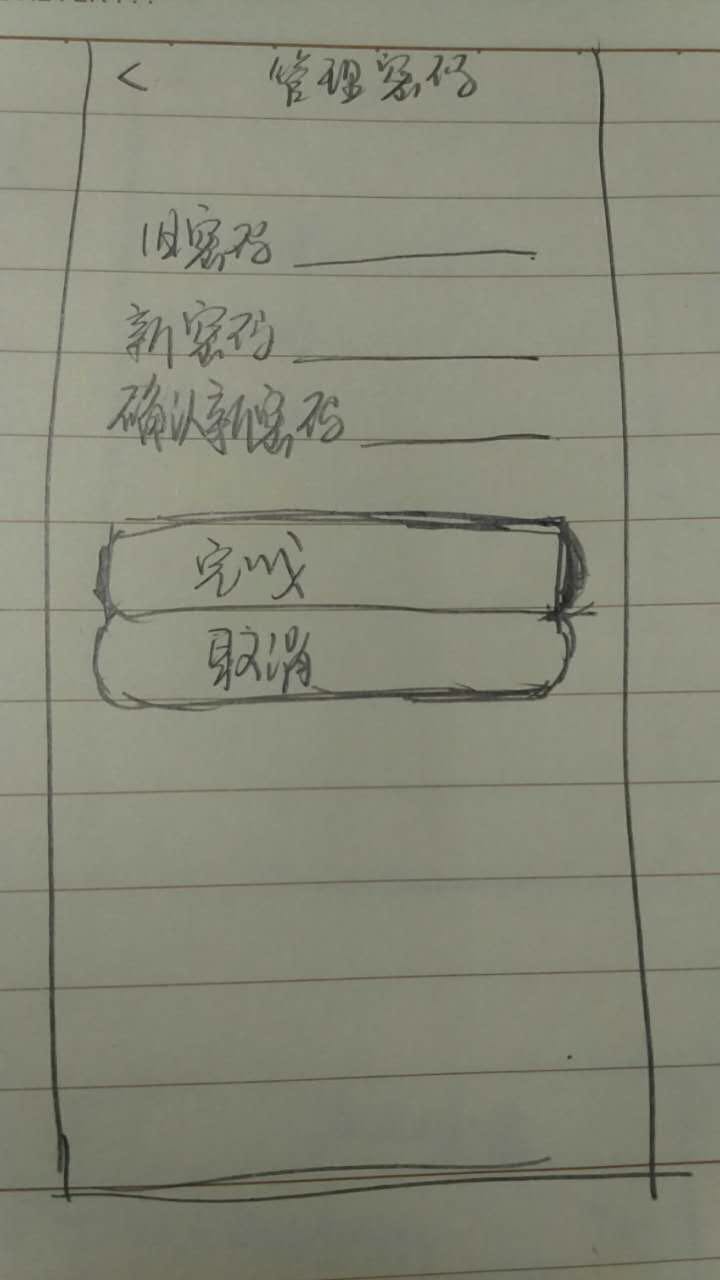 < 管理密码
旧密码
新密码
确认新密码
完成
取消